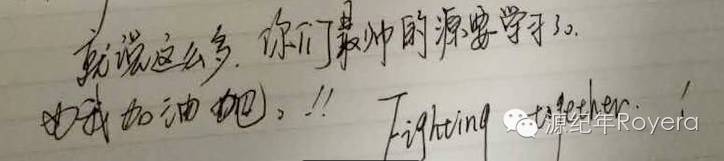 就说这么多.你们最帅的源要学习了.
为我加油吧。!!  Fighting together. !
源纪年Royera